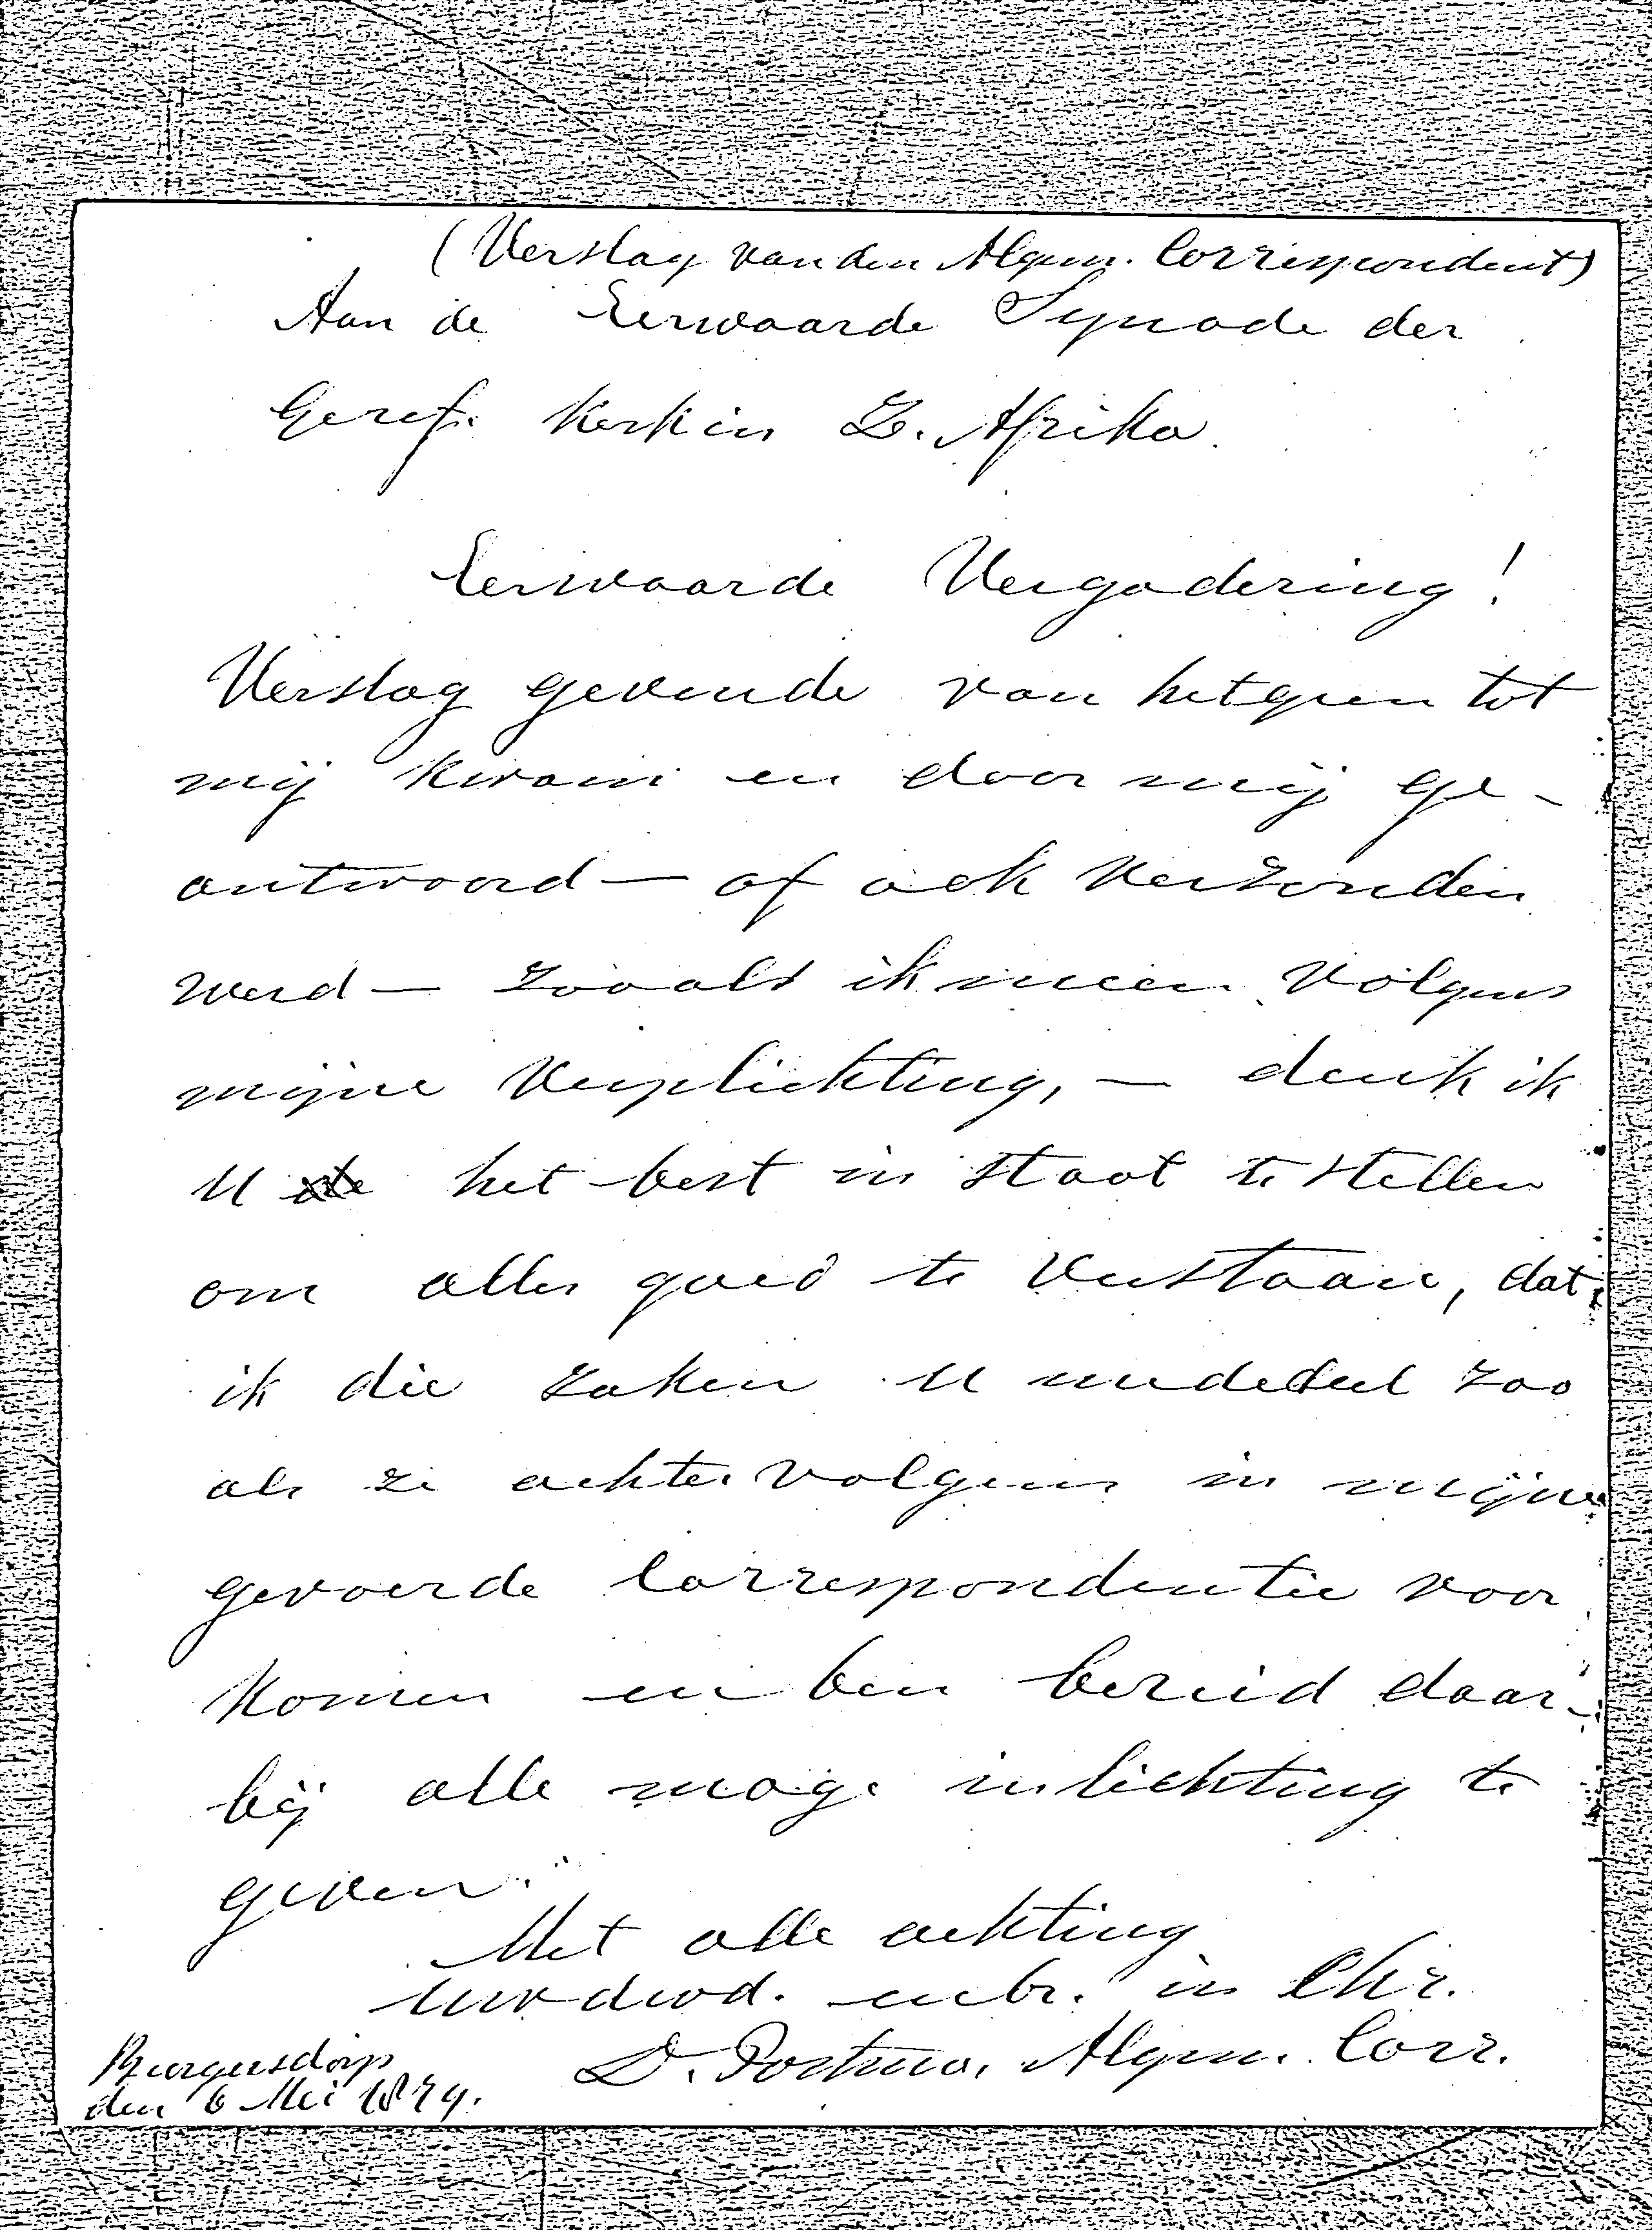 (Verslag van den Algem. Correspondent)
Aan de Eerwaarde Synode der
Geref. Kerk in Z. Afrika.
Eerwaarde Vergadering!
Verslag gevende van hetgeen tot
mij kwam en door mij ge-
antwoord — of ook verzonden
werd — zooals ik meen volgens
mijne verplichting, — denk ik
U het best in staat te stellen
om alles goed te verstaan, dat
ik die zaken U mededeel zoo
als ze achtervolgens in mijne
gevoerde Correspondentie voor
komen en ben bereid daar-
bij alle mog. inlichting te
geven.
Met alle achting
Uw dwd. en br. in Chr.
D. Postma, Algem. Corr.
Burgersdorp
den 6 Mei 1879.